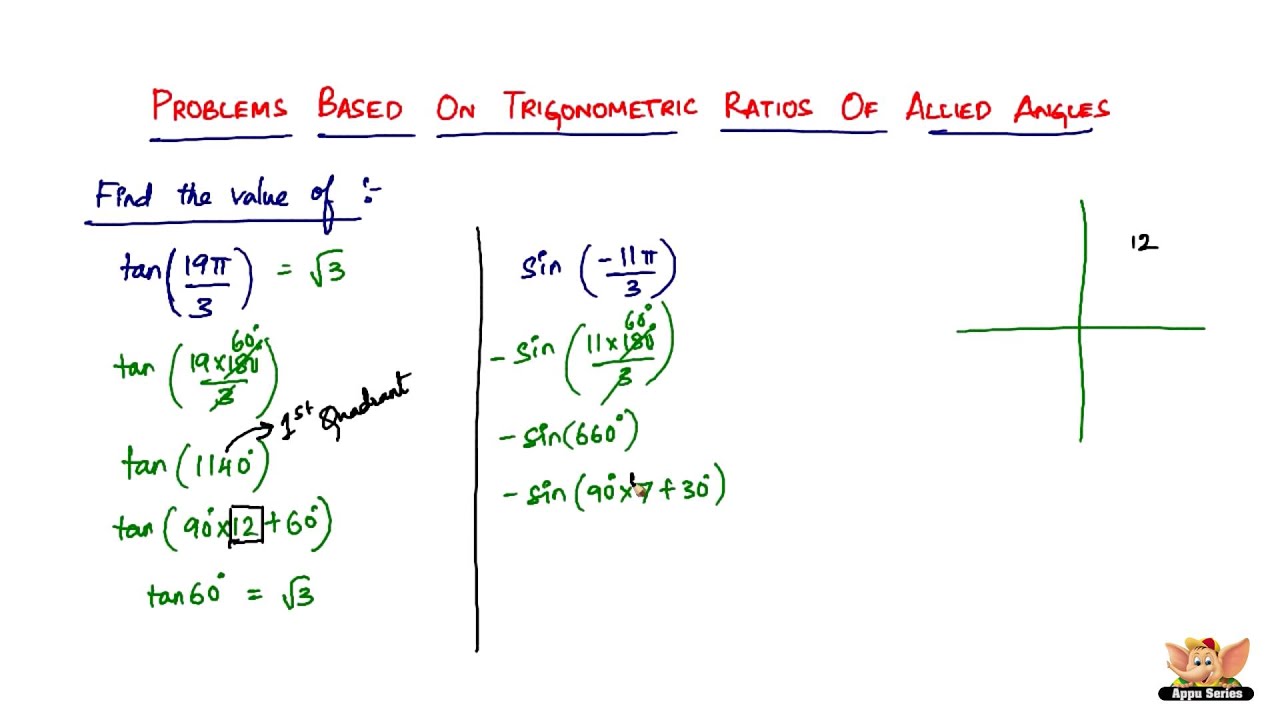 PROBLEMS BASED ON TRIGONOMETRIC RATIOS OF ALLIED ANGLES
Find the value of :-
tan(19π/3) = √3
tan(19×180°/3) 60°
tan(1140°) → 1st Quadrant
tan(90°×12+60°)
tan60° = √3
sin(-11π/3)
-sin(11×180°/3) 60°
-sin(660°)
-sin(90°×7+30°)
12
Appu Series